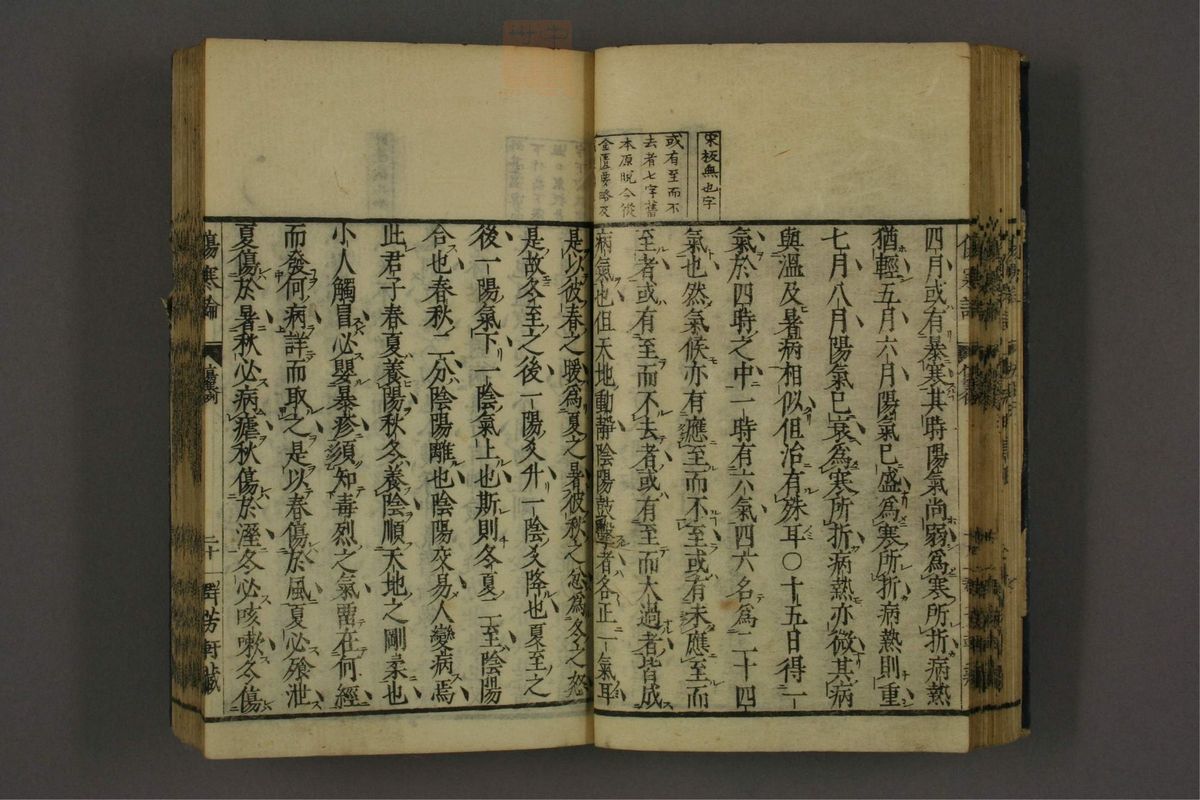 宋板無也字
或有至而不
去者七字舊
本原脫今從
金匱要略及
四月或有暴寒其時陽氣尚弱爲寒所折病熱
猶輕五月六月陽氣已盛爲寒所折病熱則重
七月八月陽氣已衰爲寒所折病熱亦微其病
與溫及暑病相似但治有殊耳○十五日得一
氣於四時之中一時有六氣四六名爲二十四
氣也然氣候亦有應至而不至或有未應至而
至者或有至而不去者或有至而太過者皆成
病氣也但天地動靜陰陽鼓擊者各正一氣耳
是以彼春之暖爲夏之暑彼秋之忿爲冬之怒
是故冬至之後一陽爻升一陰爻降也夏至之
後一陽氣下一陰氣上也斯則冬夏二至陰陽
合也春秋二分陰陽離也陰陽交易人變病焉
此君子春夏養陽秋冬養陰順天地之剛柔也
小人觸冒必嬰暴疹須知毒烈之氣畱在何經
而發何病詳而取之是以春傷於風夏必飧泄
夏傷於暑秋必病瘧秋傷於溼冬必咳嗽冬傷
傷寒論
二十
群芳軒藏